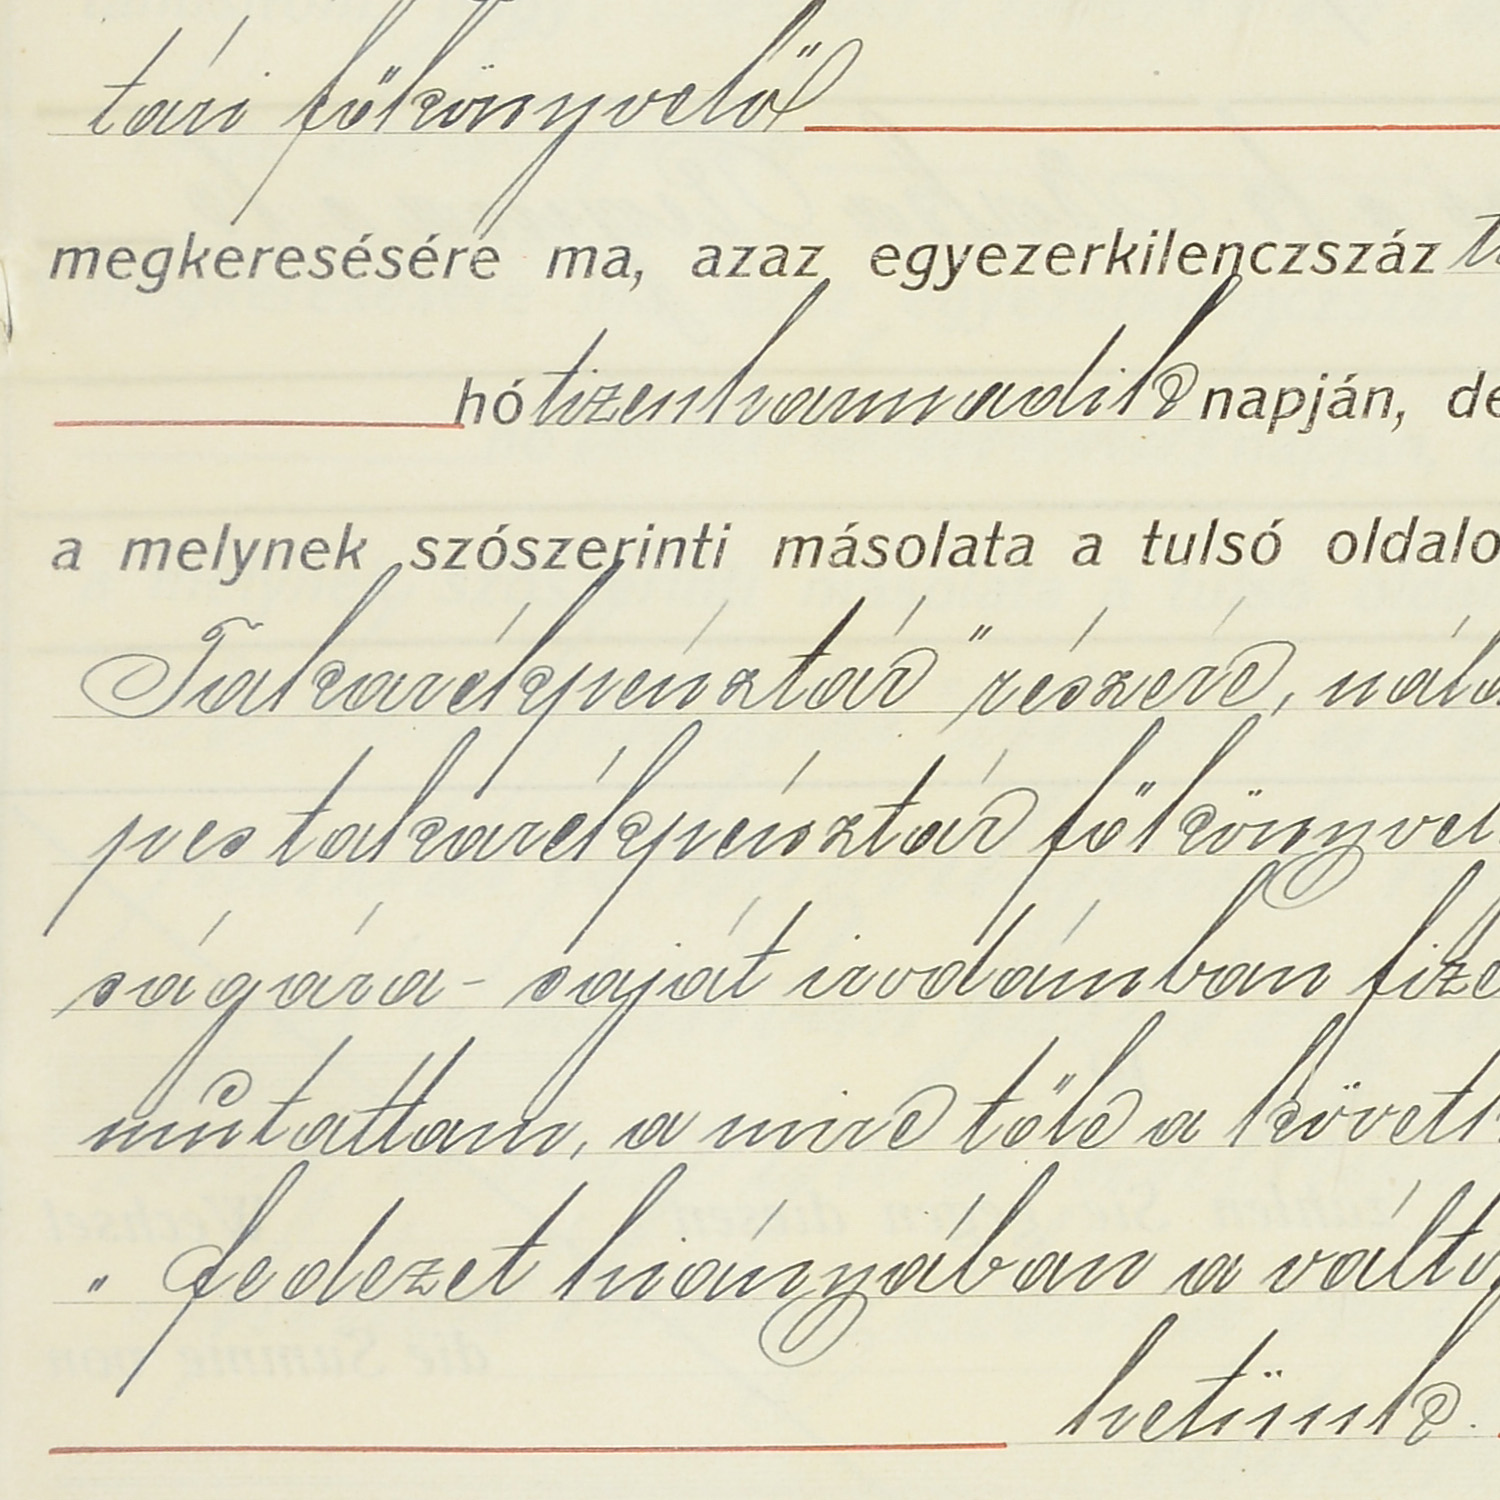 tári főkönyvelő
megkeresésére ma, azaz egyezerkilenczszáz
hó tizenharmadik napján, de
a melynek szószerinti másolata a tulsó oldalo
Takarékpénztár" részére, nála
pes takarékpénztár főkönyvel
ságára - saját irodámban fize
mutattam, a mire tőle a követk
" fedezet hiányában a váltó
hetünk.